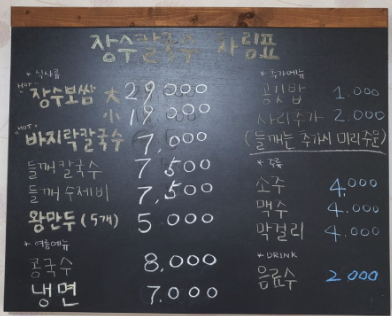 장수칼국수 차림표
* 식사류
HOT 장수보쌈 大 29,000
小 19,000
HOT 바지락칼국수 7,000
들깨칼국수 7,500
들깨수제비 7,500
왕만두 (5개) 5,000
* 여름메뉴
콩국수 8,000
냉면 7,000
* 추가메뉴
공깃밥 1,000
사리추가 2,000
(들깨는 추가시 미리주문)
* 주류
소주 4,000
맥주 4,000
막걸리 4,000
* DRINK
음료수 2,000